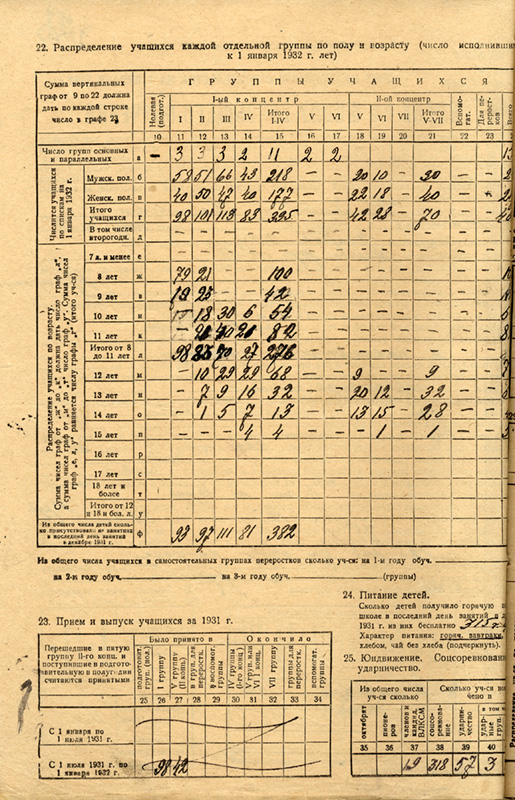 22. Распределение учащихся каждой отдельной группы по полу и возрасту (число исполнивши
к 1 января 1932 г. лет)
Сумма вертикальных
граф от 9 по 22 должна
дать по каждой строке
число в графе 23
ГРУППЫ УЧАЩИХСЯ
Нолевая (подгот.)
I-ый концентр
II-ой концентр
I II III IV Итого I-IV V VI V VI VII Итого V-VII
Вспомогат.
Для переростк.
10 11 12 13 14 15 16 17 18 19 20 21 22 23
Число групп основных и параллельных а — 3 3 3 2 11 2 2
Числится учащихся по спискам на 1 января 1932 г.
Мужск. пол. б 58 51 66 43 218 — — 20 10 — 30
Женск. пол. в 40 50 47 40 177 — — 22 18 — 40
Итого учащихся г 98 101 113 83 395 — — 42 28 — 70
В том числе второгодн. д
Распределение учащихся по возрасту.
7 л. и менее е
8 лет ж 79 21 — — 100
9 лет з 19 23 — — 42
10 лет и 18 30 6 54
11 лет к
Итого от 8 до 11 лет л 98
12 лет м — 10 29 29 68 — — 9 — — 9
13 лет н — 7 9 16 32 — — 20 12 — 32
14 лет о — 1 5 7 13 — — 13 15 — 28
15 лет п — — — 4 4 — — — 1 — 1
16 лет р
17 лет с
18 лет и более т
Итого от 12 и 18 и бол. л. у
Из общего числа детей сколько присутствовали на занятиях в последний день занятий в декабре 1931 г. ф 93 97 111 81 382
Из общего числа учащихся в самостоятельных группах переростков сколько уч-ся: на 1-м году обуч.
на 2-м году обуч. на 3-м году обуч. (группы)
23. Прием и выпуск учащихся за 1931 г.
Перешедшие в пятую группу II-го конц. и поступившие в подготовительную в полугодии считаются принятыми
Было принято в
Окончило
подготовит. груп. (нол.)
I группу
V группу (II конц.)
в групп. для переростк.
в вспомог. группы
IV группы (I-го конц.)
V груп. или VI I конц.
VII группу
группы для переростк.
вспомогат. группы
25 26 27 28 29 30 31 32 33 34
С 1 января по 1 июля 1931 г.
С 1 июля 1931 г. по 1 января 1932 г. 98 42
24. Питание детей.
Сколько детей получило горячую
школе в последний день занятий в
1931 г. из них бесплатно 315
Характер питания: горяч. завтраки,
хлебом, чай без хлеба (подчеркнуть).
25. Юндвижение. Соцсоревнован
ударничество.
Из общего числа уч-ся сколько
Сколько уч-ся во
октябрят
пионеров
членов и кандид. ВЛКСМ
соцсоревнование
ударничество
в том ч
ударные груп.
35 36 37 38 39 40
19 318 57 3